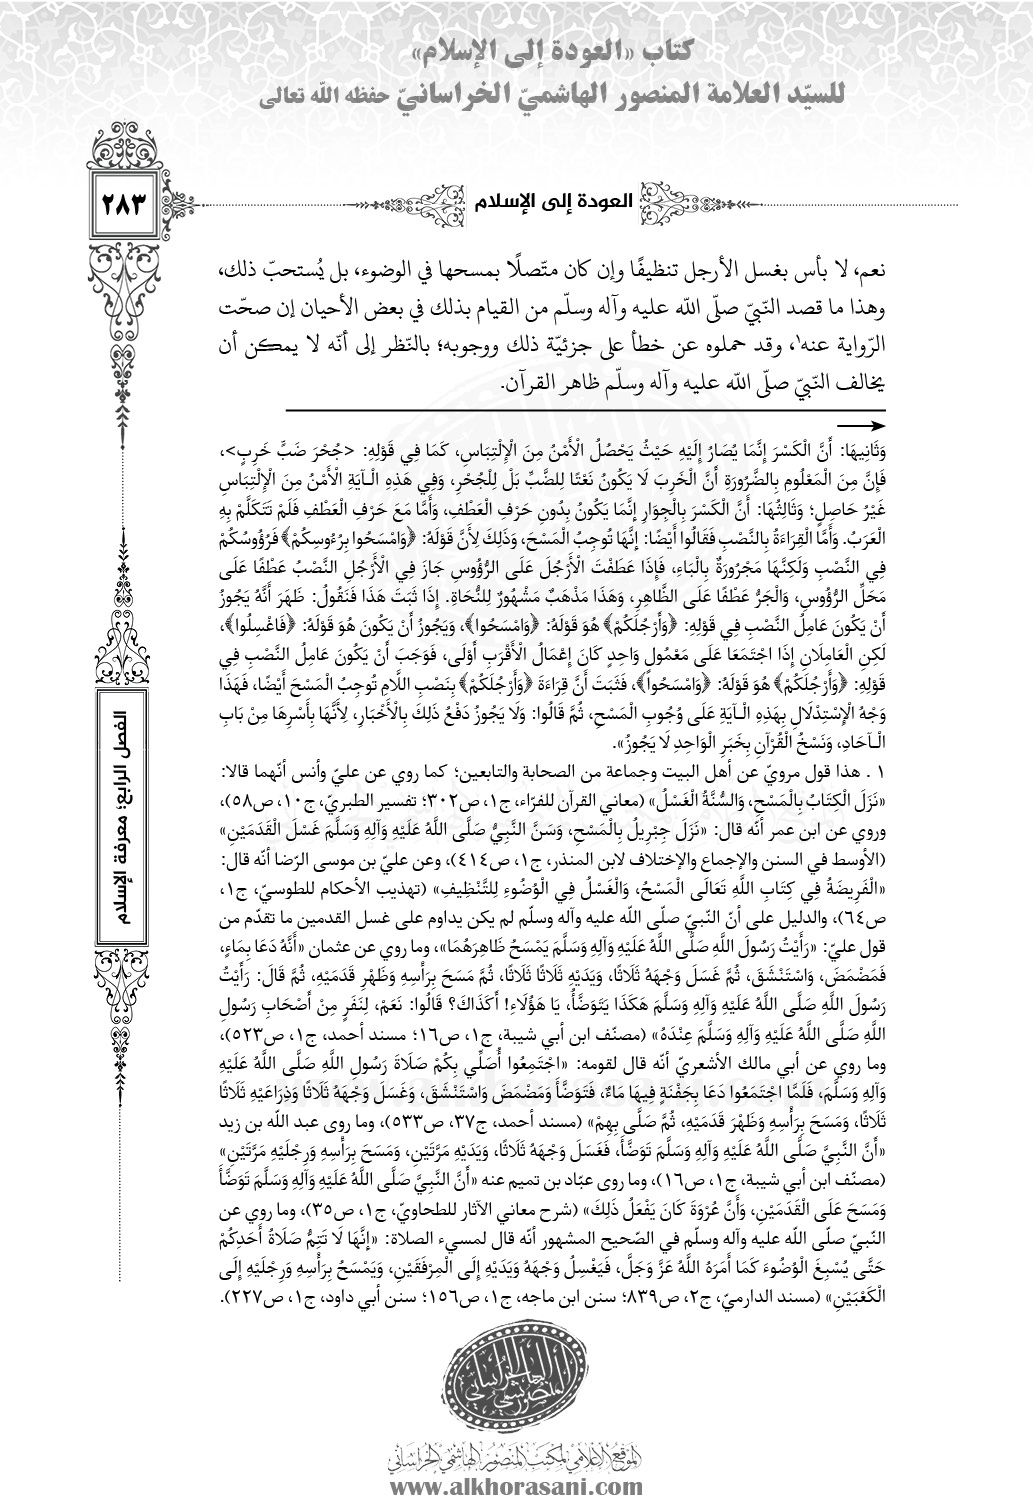 كتاب «العودة إلى الإسلام»
للسيّد العلامة المنصور الهاشميّ الخراسانيّ حفظه الله تعالى
٢٨٣
العودة إلى الإسلام
نعم، لا بأس بغسل الأرجل تنظيفًا وإن كان متّصلًا بمسحها في الوضوء، بل يُستحبّ ذلك،
وهذا ما قصد النّبيّ صلّى الله عليه وآله وسلّم من القيام بذلك في بعض الأحيان إن صحّت
الرّواية عنه١، وقد حملوه عن خطأ على جزئيّة ذلك ووجوبه؛ بالنّظر إلى أنّه لا يمكن أن
يخالف النّبيّ صلّى الله عليه وآله وسلّم ظاهر القرآن.
وَثَانِيهَا: أَنَّ الْكَسْرَ إِنَّمَا يُصَارُ إِلَيْهِ حَيْثُ يَحْصُلُ الْأَمْنُ مِنَ الْإِلْتِبَاسِ، كَمَا فِي قَوْلِهِ: <جُحْرَ ضَبٍّ خَرِبٍ>،
فَإِنَّ مِنَ الْمَعْلُومِ بِالضَّرُورَةِ أَنَّ الْخَرِبَ لَا يَكُونُ نَعْتًا لِلضَّبِّ بَلْ لِلْجُحْرِ، وَفِي هَذِهِ الْآيَةِ الْأَمْنُ مِنَ الْإِلْتِبَاسِ
غَيْرُ حَاصِلٍ؛ وَثَالِثُهَا: أَنَّ الْكَسْرَ بِالْجِوَارِ إِنَّمَا يَكُونُ بِدُونِ حَرْفِ الْعَطْفِ، وَأَمَّا مَعَ حَرْفِ الْعَطْفِ فَلَمْ تَتَكَلَّمْ بِهِ
الْعَرَبُ. وَأَمَّا الْقِرَاءَةُ بِالنَّصْبِ فَقَالُوا أَيْضًا: إِنَّهَا تُوجِبُ الْمَسْحَ، وَذَلِكَ لِأَنَّ قَوْلَهُ: ﴿وَامْسَحُوا بِرُءُوسِكُمْ﴾ فَرُؤُوسُكُمْ
فِي النَّصْبِ وَلَكِنَّهَا مَجْرُورَةٌ بِالْبَاءِ، فَإِذَا عَطَفْتَ الْأَرْجُلَ عَلَى الرُّؤُوسِ جَازَ فِي الْأَرْجُلِ النَّصْبُ عَطْفًا عَلَى
مَحَلِّ الرُّؤُوسِ، وَالْجَرُّ عَطْفًا عَلَى الظَّاهِرِ، وَهَذَا مَذْهَبٌ مَشْهُورٌ لِلنُّحَاةِ. إِذَا ثَبَتَ هَذَا فَنَقُولُ: ظَهَرَ أَنَّهُ يَجُوزُ
أَنْ يَكُونَ عَامِلُ النَّصْبِ فِي قَوْلِهِ: ﴿وَأَرْجُلَكُمْ﴾ هُوَ قَوْلَهُ: ﴿وَامْسَحُوا﴾، وَيَجُوزُ أَنْ يَكُونَ هُوَ قَوْلَهُ: ﴿فَاغْسِلُوا﴾،
لَكِنِ الْعَامِلَانِ إِذَا اجْتَمَعَا عَلَى مَعْمُولٍ وَاحِدٍ كَانَ إِعْمَالُ الْأَقْرَبِ أَوْلَى، فَوَجَبَ أَنْ يَكُونَ عَامِلُ النَّصْبِ فِي
قَوْلِهِ: ﴿وَأَرْجُلَكُمْ﴾ هُوَ قَوْلَهُ: ﴿وَامْسَحُواْ﴾، فَثَبَتَ أَنَّ قِرَاءَةَ ﴿وَأَرْجُلَكُمْ﴾ بِنَصْبِ اللَّامِ تُوجِبُ الْمَسْحَ أَيْضًا، فَهَذَا
وَجْهُ الْإِسْتِدْلَالِ بِهَذِهِ الْآيَةِ عَلَى وُجُوبِ الْمَسْحِ، ثُمَّ قَالُوا: وَلَا يَجُوزُ دَفْعُ ذَلِكَ بِالْأَخْبَارِ، لِأَنَّهَا بِأَسْرِهَا مِنْ بَابِ
الْآحَادِ، وَنَسْخُ الْقُرْآنِ بِخَبَرِ الْوَاحِدِ لَا يَجُوزُ».
١ . هذا قول مرويّ عن أهل البيت وجماعة من الصحابة والتابعين؛ كما روي عن عليّ وأنس أنّهما قالا:
«نَزَلَ الْكِتَابُ بِالْمَسْحِ، وَالسُّنَّةُ الْغَسْلُ» (معاني القرآن للفرّاء، ج١، ص٣٠٢؛ تفسير الطبريّ، ج١٠، ص٥٨)،
وروي عن ابن عمر أنّه قال: «نَزَلَ جِبْرِيلُ بِالْمَسْحِ، وَسَنَّ النَّبِيُّ صَلَّى اللَّهُ عَلَيْهِ وَآلِهِ وَسَلَّمَ غَسْلَ الْقَدَمَيْنِ»
(الأوسط في السنن والإجماع والإختلاف لابن المنذر، ج١، ص٤١٤)، وعن عليّ بن موسى الرّضا أنّه قال:
«الْفَرِيضَةُ فِي كِتَابِ اللَّهِ تَعَالَى الْمَسْحُ، وَالْغَسْلُ فِي الْوُضُوءِ لِلتَّنْظِيفِ» (تهذيب الأحكام للطوسيّ، ج١،
ص٦٤)، والدليل على أنّ النّبيّ صلّى الله عليه وآله وسلّم لم يكن يداوم على غسل القدمين ما تقدّم من
قول عليّ: «رَأَيْتُ رَسُولَ اللَّهِ صَلَّى اللَّهُ عَلَيْهِ وَآلِهِ وَسَلَّمَ يَمْسَحُ ظَاهِرَهُمَا»، وما روي عن عثمان «أَنَّهُ دَعَا بِمَاءٍ،
فَمَضْمَضَ، وَاسْتَنْشَقَ، ثُمَّ غَسَلَ وَجْهَهُ ثَلَاثًا، وَيَدَيْهِ ثَلَاثًا ثَلَاثًا، ثُمَّ مَسَحَ بِرَأْسِهِ وَظَهْرِ قَدَمَيْهِ، ثُمَّ قَالَ: رَأَيْتُ
رَسُولَ اللَّهِ صَلَّى اللَّهُ عَلَيْهِ وَآلِهِ وَسَلَّمَ هَكَذَا يَتَوَضَّأُ، يَا هَؤُلَاءِ! أَكَذَاكَ؟ قَالُوا: نَعَمْ، لِنَفَرٍ مِنْ أَصْحَابِ رَسُولِ
اللَّهِ صَلَّى اللَّهُ عَلَيْهِ وَآلِهِ وَسَلَّمَ عِنْدَهُ» (مصنّف ابن أبي شيبة، ج١، ص١٦؛ مسند أحمد، ج١، ص٥٢٣)،
وما روي عن أبي مالك الأشعريّ أنّه قال لقومه: «اجْتَمِعُوا أُصَلِّي بِكُمْ صَلَاةَ رَسُولِ اللَّهِ صَلَّى اللَّهُ عَلَيْهِ
وَآلِهِ وَسَلَّمَ، فَلَمَّا اجْتَمَعُوا دَعَا بِجَفْنَةٍ فِيهَا مَاءٌ، فَتَوَضَّأَ وَمَضْمَضَ وَاسْتَنْشَقَ، وَغَسَلَ وَجْهَهُ ثَلَاثًا وَذِرَاعَيْهِ ثَلَاثًا
ثَلَاثًا، وَمَسَحَ بِرَأْسِهِ وَظَهْرَ قَدَمَيْهِ، ثُمَّ صَلَّى بِهِمْ» (مسند أحمد، ج٣٧، ص٥٣٣)، وما روى عبد الله بن زيد
«أَنَّ النَّبِيَّ صَلَّى اللَّهُ عَلَيْهِ وَآلِهِ وَسَلَّمَ تَوَضَّأَ، فَغَسَلَ وَجْهَهُ ثَلَاثًا، وَيَدَيْهِ مَرَّتَيْنِ، وَمَسَحَ بِرَأْسِهِ وَرِجْلَيْهِ مَرَّتَيْنِ»
(مصنّف ابن أبي شيبة، ج١، ص١٦)، وما روى عبّاد بن تميم عنه «أَنَّ النَّبِيَّ صَلَّى اللَّهُ عَلَيْهِ وَآلِهِ وَسَلَّمَ تَوَضَّأَ
وَمَسَحَ عَلَى الْقَدَمَيْنِ، وَأَنَّ عُرْوَةَ كَانَ يَفْعَلُ ذَلِكَ» (شرح معاني الآثار للطحاويّ، ج١، ص٣٥)، وما روي عن
النّبيّ صلّى الله عليه وآله وسلّم في الصّحيح المشهور أنّه قال لمسيء الصلاة: «إِنَّهَا لَا تَتِمُّ صَلَاةُ أَحَدِكُمْ
حَتَّى يُسْبِغَ الْوُضُوءَ كَمَا أَمَرَهُ اللَّهُ عَزَّ وَجَلَّ، فَيَغْسِلُ وَجْهَهُ وَيَدَيْهِ إِلَى الْمِرْفَقَيْنِ، وَيَمْسَحُ بِرَأْسِهِ وَرِجْلَيْهِ إِلَى
الْكَعْبَيْنِ» (مسند الدارميّ، ج٢، ص٨٣٩؛ سنن ابن ماجه، ج١، ص١٥٦؛ سنن أبي داود، ج١، ص٢٢٧).
الفصل الرابع: معرفة الإسلام
المنصور الهاشمي الخراساني
الموقع الإعلامي لمكتب المنصور الهاشمي الخراساني
www.alkhorasani.com